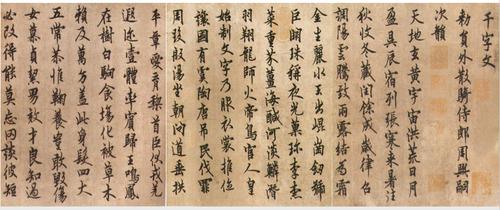 千字文
勑員外散騎侍郎周興嗣
次韻
天地玄黃宇宙洪荒日月
盈昃辰宿列張寒來暑往
秋收冬藏閏餘成歲律呂
調陽雲騰致雨露結為霜
金生麗水玉出崐崗劒號
巨闕珠稱夜光菓珎李柰
菜重芥薑海醎河淡鱗潛
羽翔龍師火帝鳥官人皇
始制文字乃服衣裳推位
讓國有虞陶唐吊民伐罪
周發殷湯坐朝問道垂拱
平章愛育黎首臣伏戎羌
遐迩壹體率賓歸王鳴鳳
在樹白駒食場化被草木
賴及萬方蓋此身髮四大
五常恭惟鞠養豈敢毀傷
女慕貞絜男效才良知過
必改得能莫忘罔談彼短